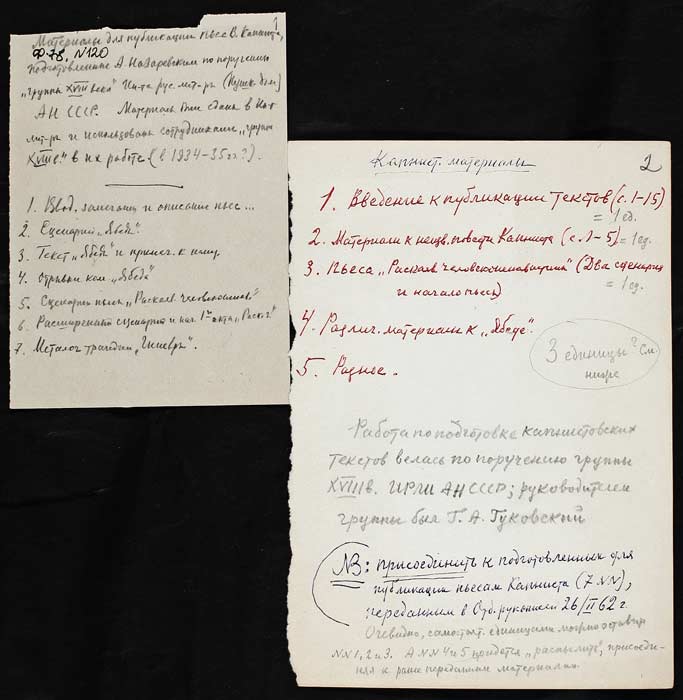 1
Материалы для публикации пьес В. Капниста,
Ф. 78, N120
подготовленные А. Назаревским по поручению
"группы XVIII века" Ин-та рус. лит-ры (Пушк. дом)
АН СССР. Материалы были сданы в Ин-т
лит-ры и использованы сотрудниками "группы
XVIII в." в их работе (в 1934-35 гг.?).
1. Ввод. замечания и описание пьес...
2. Сценарий "Ябеды"
3. Текст "Ябеды" и примеч. к нему.
4. Отрывки ком. "Ябеда"
5. Сценарии пьесы "Раскаяв. человеконенав."
6. Расширенный сценарий и нач. 1го акта "Раск. ч."
7. Металог трагедии "Гиневра".
2
Капнист. материалы
1. Введение к публикации текстов (с. 1-15)
= 1 ед.
2. Материалы к неизв. повести Капниста (с. 1-5) = 1 ед.
3. Пьеса "Раскаяв. человеконенавидящий" (Два сценария
и начало пьесы)
= 1 ед.
4. Различ. материалы к "Ябеде".
3 единицы? См.
ниже
5. Разное.
Работа по подготовке капнистовских
текстов велась по поручению группы
XVIII в. ИРЛИ АН СССР; руководителем
группы был Г. А. Гуковский
NB: присоединить к подготовленным для
публикации пьесам Капниста (7 NN),
переданным в Отд. рукописей 26/II 62 г.
Очевидно, самостоят. единицами можно оставить
NN 1, 2 и 3. А NN 4 и 5 придется "распылить", присоеди-
няя к ранее переданным материалам.